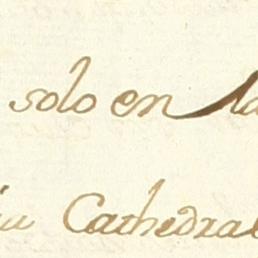 solo en la
ia Cathedral